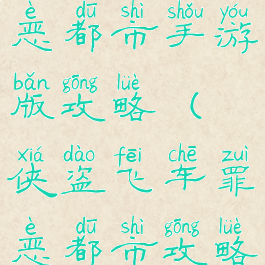 è dū shì shǒu yóu
恶都市手游
bǎn gōng lüè
版攻略（
xiá dào fēi chē zuì
侠盗飞车罪
è dū shì gōng lüè
恶都市攻略